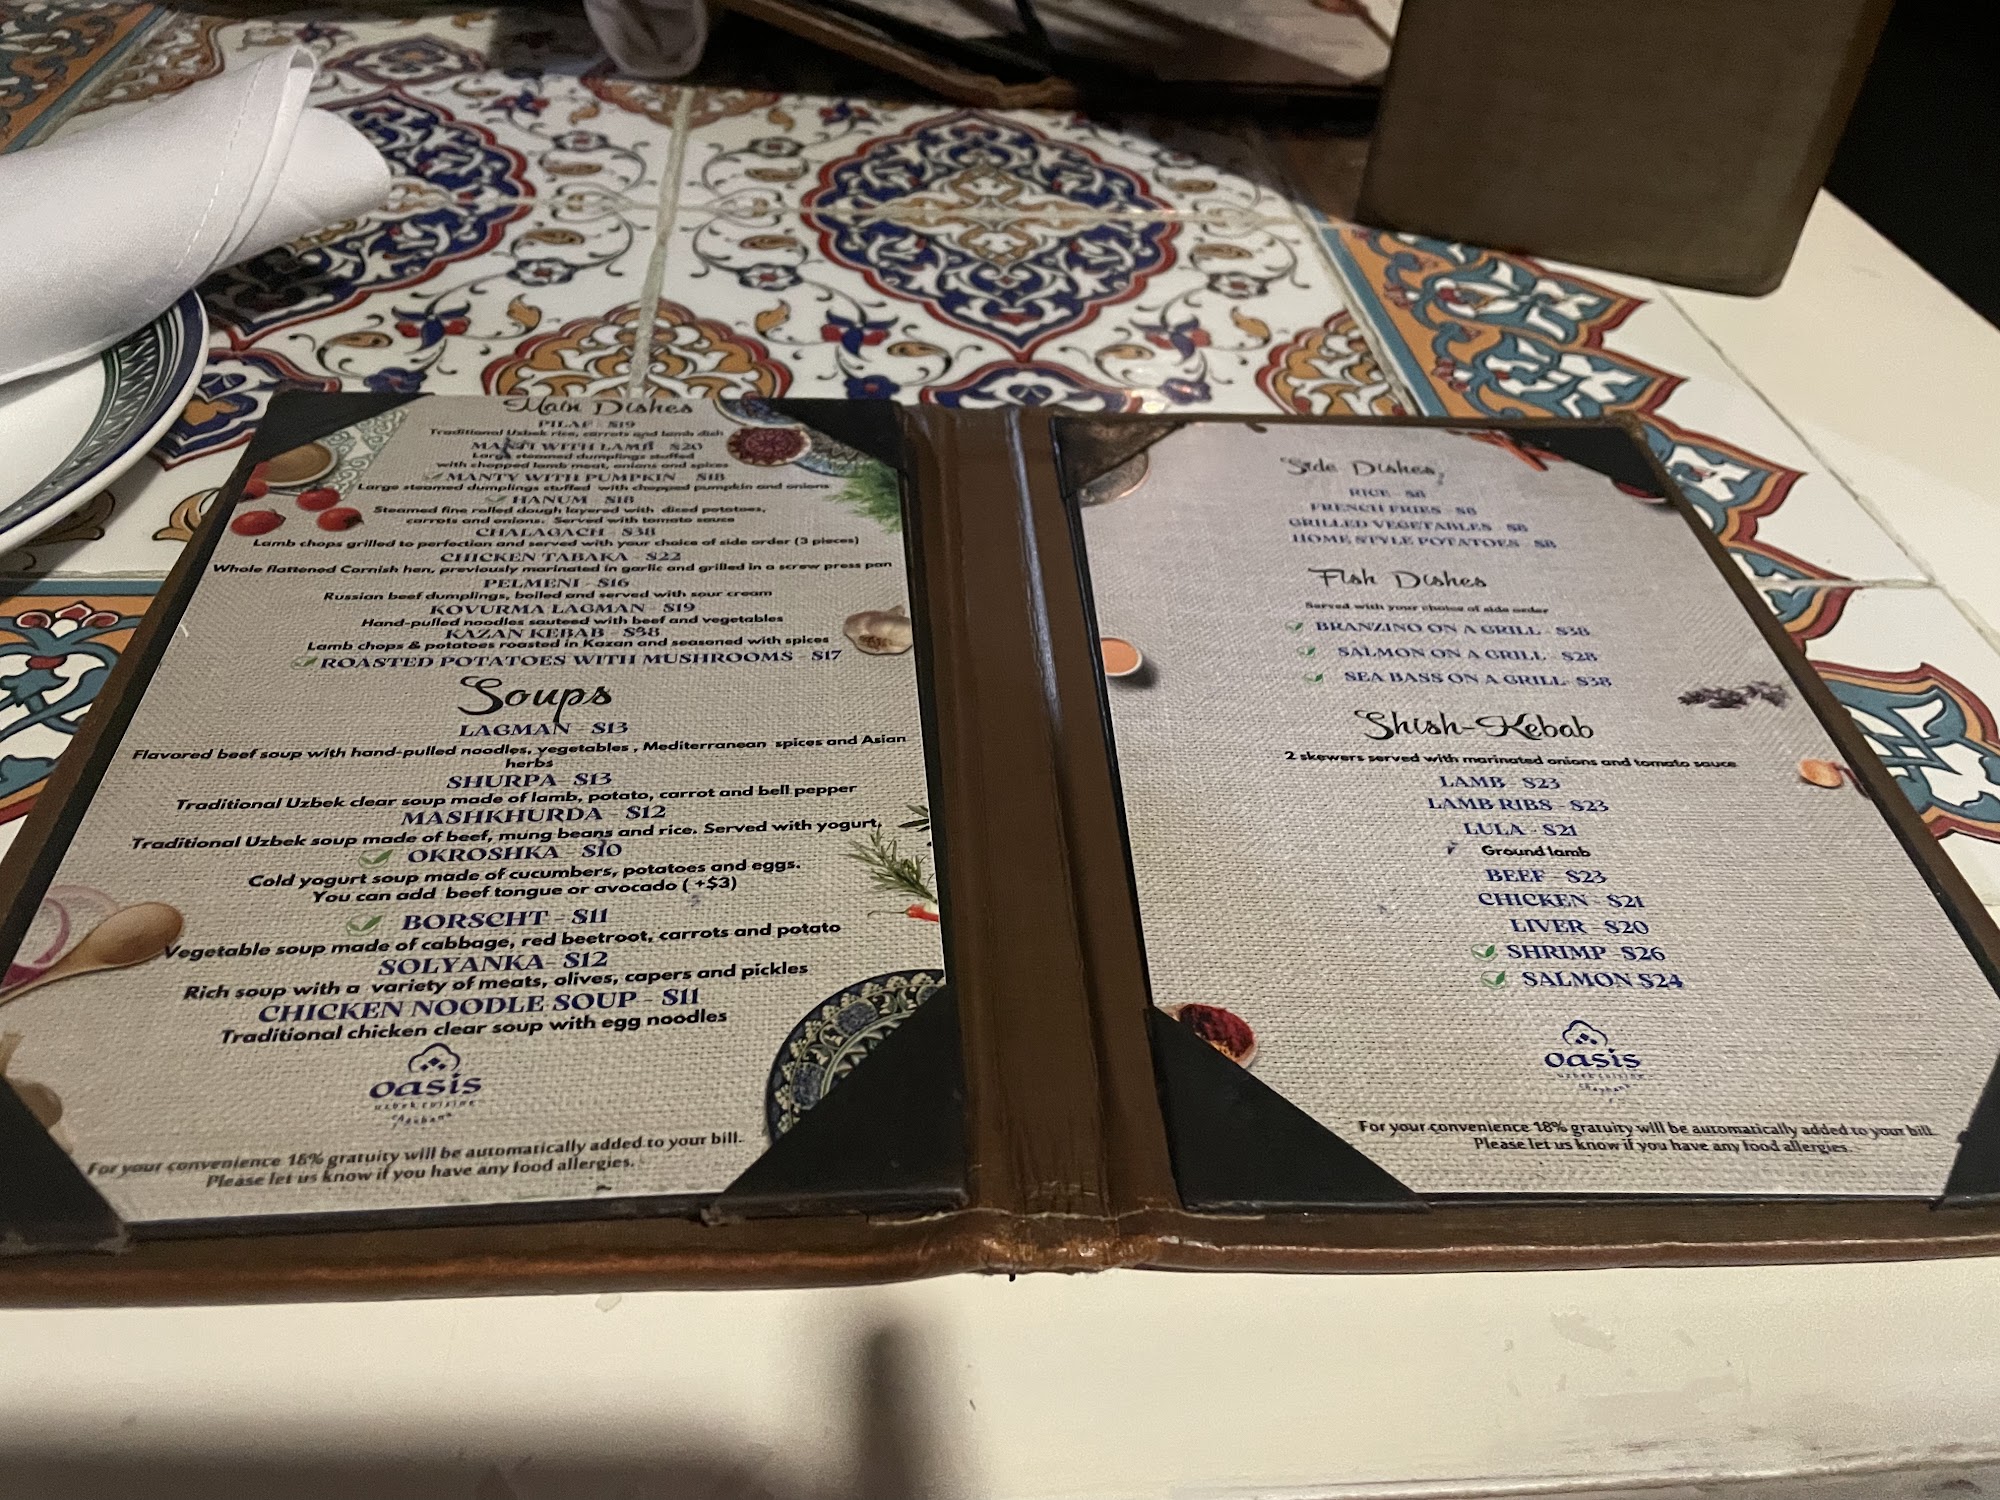 Main Dishes
PILAF - $19
Traditional Uzbek rice, carrots and lamb dish
MANTY WITH LAMB - $20
Large steamed dumplings stuffed
with chopped lamb meat, onions and spices
MANTY WITH PUMPKIN - $18
Large steamed dumplings stuffed with chopped pumpkin and onions
HANUM - $18
Steamed fine rolled dough layered with diced potatoes,
carrots and onions. Served with tomato sauce
CHALAGACH - $38
Lamb chops grilled to perfection and served with your choice of side order (3 pieces)
CHICKEN TABAKA - $22
Whole flattened Cornish hen, previously marinated in garlic and grilled in a screw press pan
PELMENI - $16
Russian beef dumplings, boiled and served with sour cream
KOVURMA LAGMAN - $19
Hand-pulled noodles sauteed with beef and vegetables
KAZAN KEBAB - $38
Lamb chops & potatoes roasted in Kazan and seasoned with spices
ROASTED POTATOES WITH MUSHROOMS - $17
Soups
LAGMAN - $13
Flavored beef soup with hand-pulled noodles, vegetables , Mediterranean spices and Asian
herbs
SHURPA- $13
Traditional Uzbek clear soup made of lamb, potato, carrot and bell pepper
MASHKHURDA - $12
Traditional Uzbek soup made of beef, mung beans and rice. Served with yogurt,
OKROSHKA - $10
Cold yogurt soup made of cucumbers, potatoes and eggs.
You can add beef tongue or avocado ( +$3)
BORSCHT - $11
Vegetable soup made of cabbage, red beetroot, carrots and potato
SOLYANKA- $12
Rich soup with a variety of meats, olives, capers and pickles
CHICKEN NOODLE SOUP - $11
Traditional chicken clear soup with egg noodles
oasis
uzbek cuisine
For your convenience 18% gratuity will be automatically added to your bill.
Please let us know if you have any food allergies.
Side Dishes
RICE - $6
FRENCH FRIES - $6
GRILLED VEGETABLES - $6
HOME STYLE POTATOES - $8
Fish Dishes
Served with your choice of side order
BRANZINO ON A GRILL - $38
SALMON ON A GRILL - $28
SEA BASS ON A GRILL- $38
Shish-Kebab
2 skewers served with marinated onions and tomato sauce
LAMB - $23
LAMB RIBS - $23
LULA - $21
Ground lamb
BEEF - $23
CHICKEN - $21
LIVER - $20
SHRIMP - $26
SALMON $24
oasis
uzbek cuisine
For your convenience 18% gratuity will be automatically added to your bill.
Please let us know if you have any food allergies.